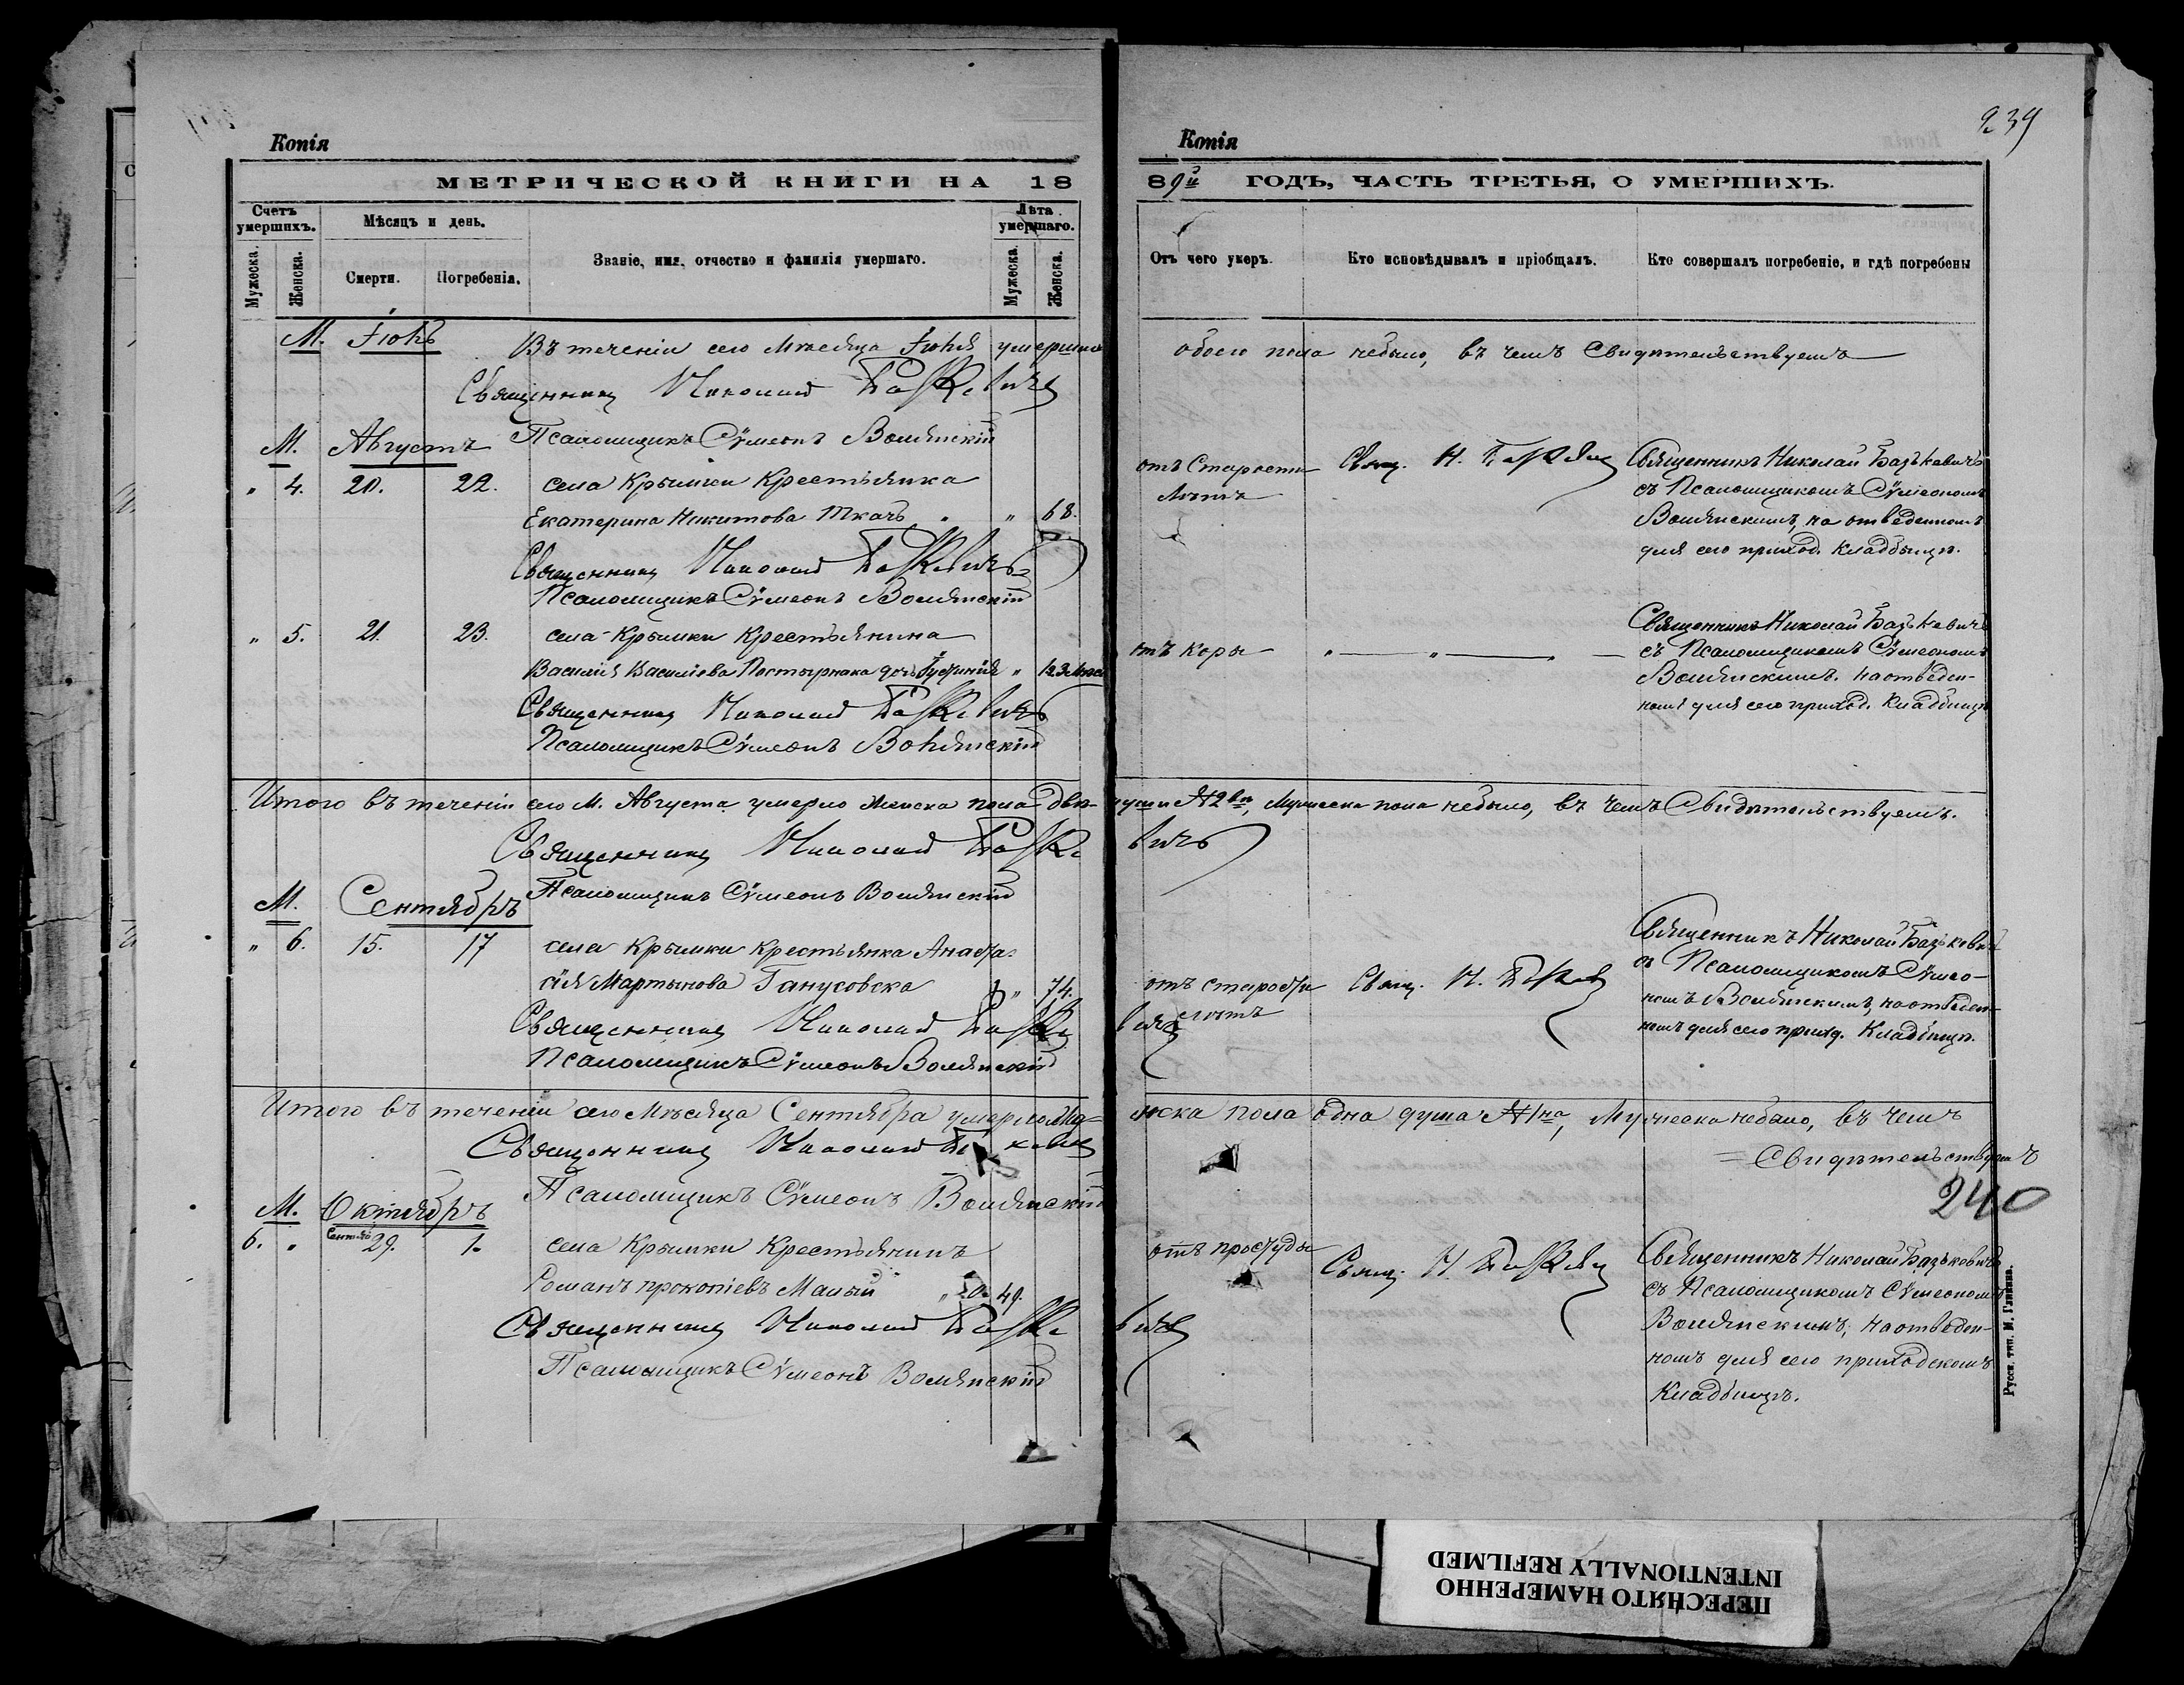 239
Копія
МЕТРИЧЕСКОЙ КНИГИ НА 18
Счетъ умершихъ.
Мѣсяцъ и день.
Званіе, имя, отчество и фамилія умершаго.
Лѣта умершаго.
Мужеска.
Женска.
Смерти.
Погребенія.
Мужеска.
Женска.
М. Іюль
Въ теченіи сего Мѣсяца Іюля умершихъ
Священникъ Николай Базкевичъ
М. Августъ
Псаломщикъ Сѵмеонъ Волянскій
" 4. 20. 22. села Крымки Крестьянка
Екатерина Никитова Ткачъ " 68.
Священникъ Николай Базкевичъ
Псаломщикъ Сѵмеонъ Волянскій
" 5. 21. 23. села Крымки Крестьянина
Василія Василіева Постырнака дочь "
Священникъ Николай Базкевичъ
Псаломщикъ Сѵмеонъ Волянскій
Итого въ теченіи сего М. Августа умерло Женска пола двѣ
Священникъ Николай Базке
М. Сентябрь
Псаломщикъ Сѵмеонъ Волянскій
" 6. 15. 17 села Крымки Крестьянка Анаста-
сія Мартынова Ганусовска " 74.
Священникъ Николай Базке
Псаломщикъ Сѵмеонъ Волянскій
Итого въ теченіи сего Мѣсяца Сентября умерло Же-
Священникъ Николай
Псаломщикъ Сѵмеонъ Волянскій
М. Октябрь
6. " Сентяб 29. 1. села Крымки Крестьянинъ
Романъ Прокопіевъ Малый 49.
Священникъ Николай Базке
Псаломщикъ Сѵмеонъ Волянскій
Копія
89й ГОДЪ, ЧАСТЬ ТРЕТЬЯ, О УМЕРШИХЪ.
Отъ чего умеръ.
Кто исповѣдывалъ и пріобщалъ.
Кто совершалъ погребеніе, и гдѣ погребены
обоего пола небыло, въ чемъ Свидѣтельствуемъ
отъ Старости Свящ. Н. Базкевичъ Священникъ Николай Базъкевичъ
лѣтъ съ Псаломщикомъ Сѵмеономъ
Волянскимъ, на отведенномъ
для сего приход. Кладбищѣ.
Священникъ Николай Базъкевичъ
отъ Коры " — " — " — съ Псаломщикомъ Сѵмеономъ
Волянскимъ. на отведен-
номъ для сего приход. Кладбищѣ
души №2вѣ, Мужеска пола небыло, въ чемъ Свидѣтельствуемъ.
вичъ
Священникъ Николай Базъкевичъ
съ Псаломщикомъ Сѵмео-
отъ старости Свящ. Н. Базкев номъ Волянскимъ, на отведен-
лѣтъ номъ для сего прихд. Кладбищѣ.
вичъ
нска пола одна душа №1на, Мужеска небыло, въ чемъ
Свидѣтельствуемъ
240
отъ простуды Свящ. Н. Базкевичъ Священникъ Николай Базъковичъ
съ Псаломщикомъ Сѵмеономъ
вичъ Волянскимъ, на отведен-
номъ для сего приходскомъ
Кладбищѣ.
Русск. тип. М. Гликина.
ПЕРЕСНЯТО НАМЕРЕННО
INTENTIONALLY REFILMED